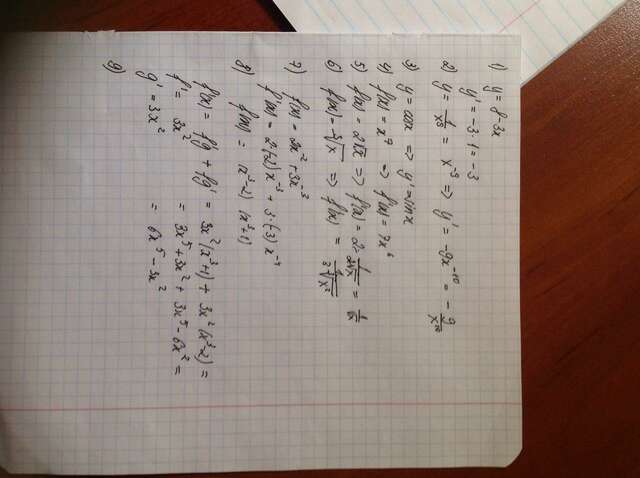 1) y = 8 - 3x
y' = -3 · 1 = -3
2) y = 1/x⁹ = x⁻⁹ ⇒ y' = -9x⁻¹⁰ = - 9/x¹⁰
3) y = cosx ⇒ y' = sinx
4) f(x) = x⁷ ⇒ f'(x) = 7x⁶
5) f(x) = 2√x ⇒ f'(x) = 2 · 1/2√x = 1/√x
6) f(x) = ³√x ⇒ f'(x) = 1/3³√x²
7) f(x) = 2x⁻² + 3x⁻³
f'(x) = 2·(-2)x⁻³ + 3·(-3)x⁻⁴
8) f(x) = (x³-2)(x³+1)
f'(x) = f'g + fg' = 3x²(x³+1) + 3x²(x³-2) =
f' = 3x² = 3x⁵ + 3x² + 3x⁵ - 6x² =
g' = 3x² = 6x⁵ - 3x²
9)